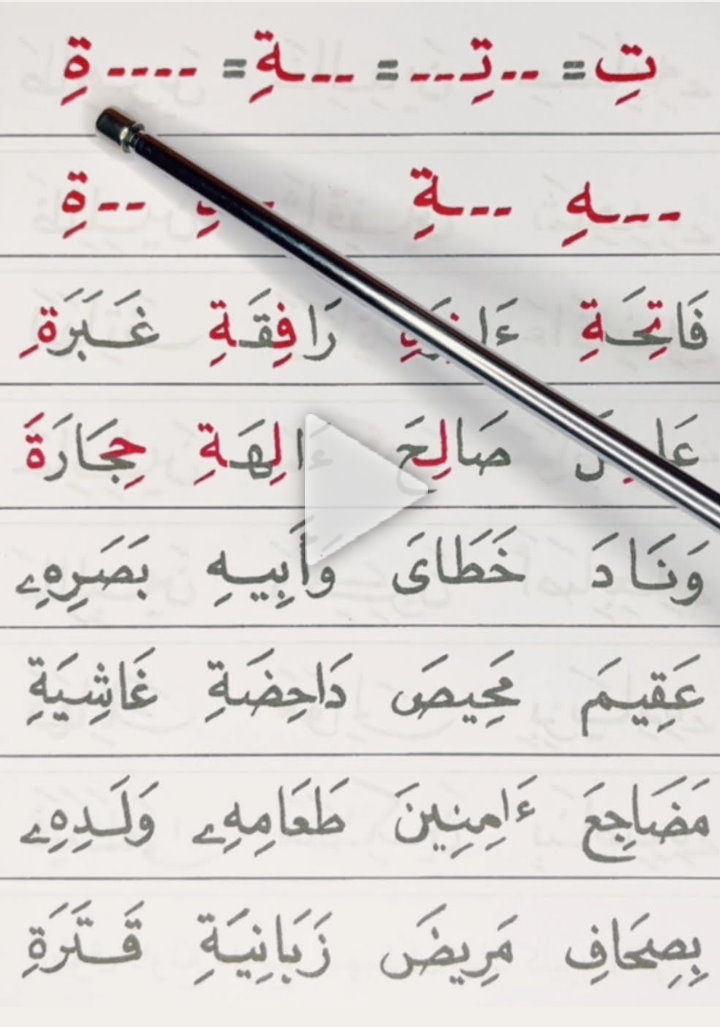 تِ = --تِ-- = --ـةِ = ----ةِ
--ـهِ --ـةِ --ةِ
فَاتِحَةِ رَافِقَةِ غَبَرَةِ
صَالِحَ ءَالِهَةِ حِجَارَةَ
وَنَادَ خَطَايَ وَأَبِيهِ بَصَرِهِۦ
عَقِيمَ مَحِيصَ دَاحِضَةِ غَاشِيَةِ
مَضَاجِعَ ءَامِنِينَ طَعَامِهِۦ وَلَدِهِۦ
بِصِحَافِ مَرِيضَ زَبَانِيَةِ قَتَرَةِ